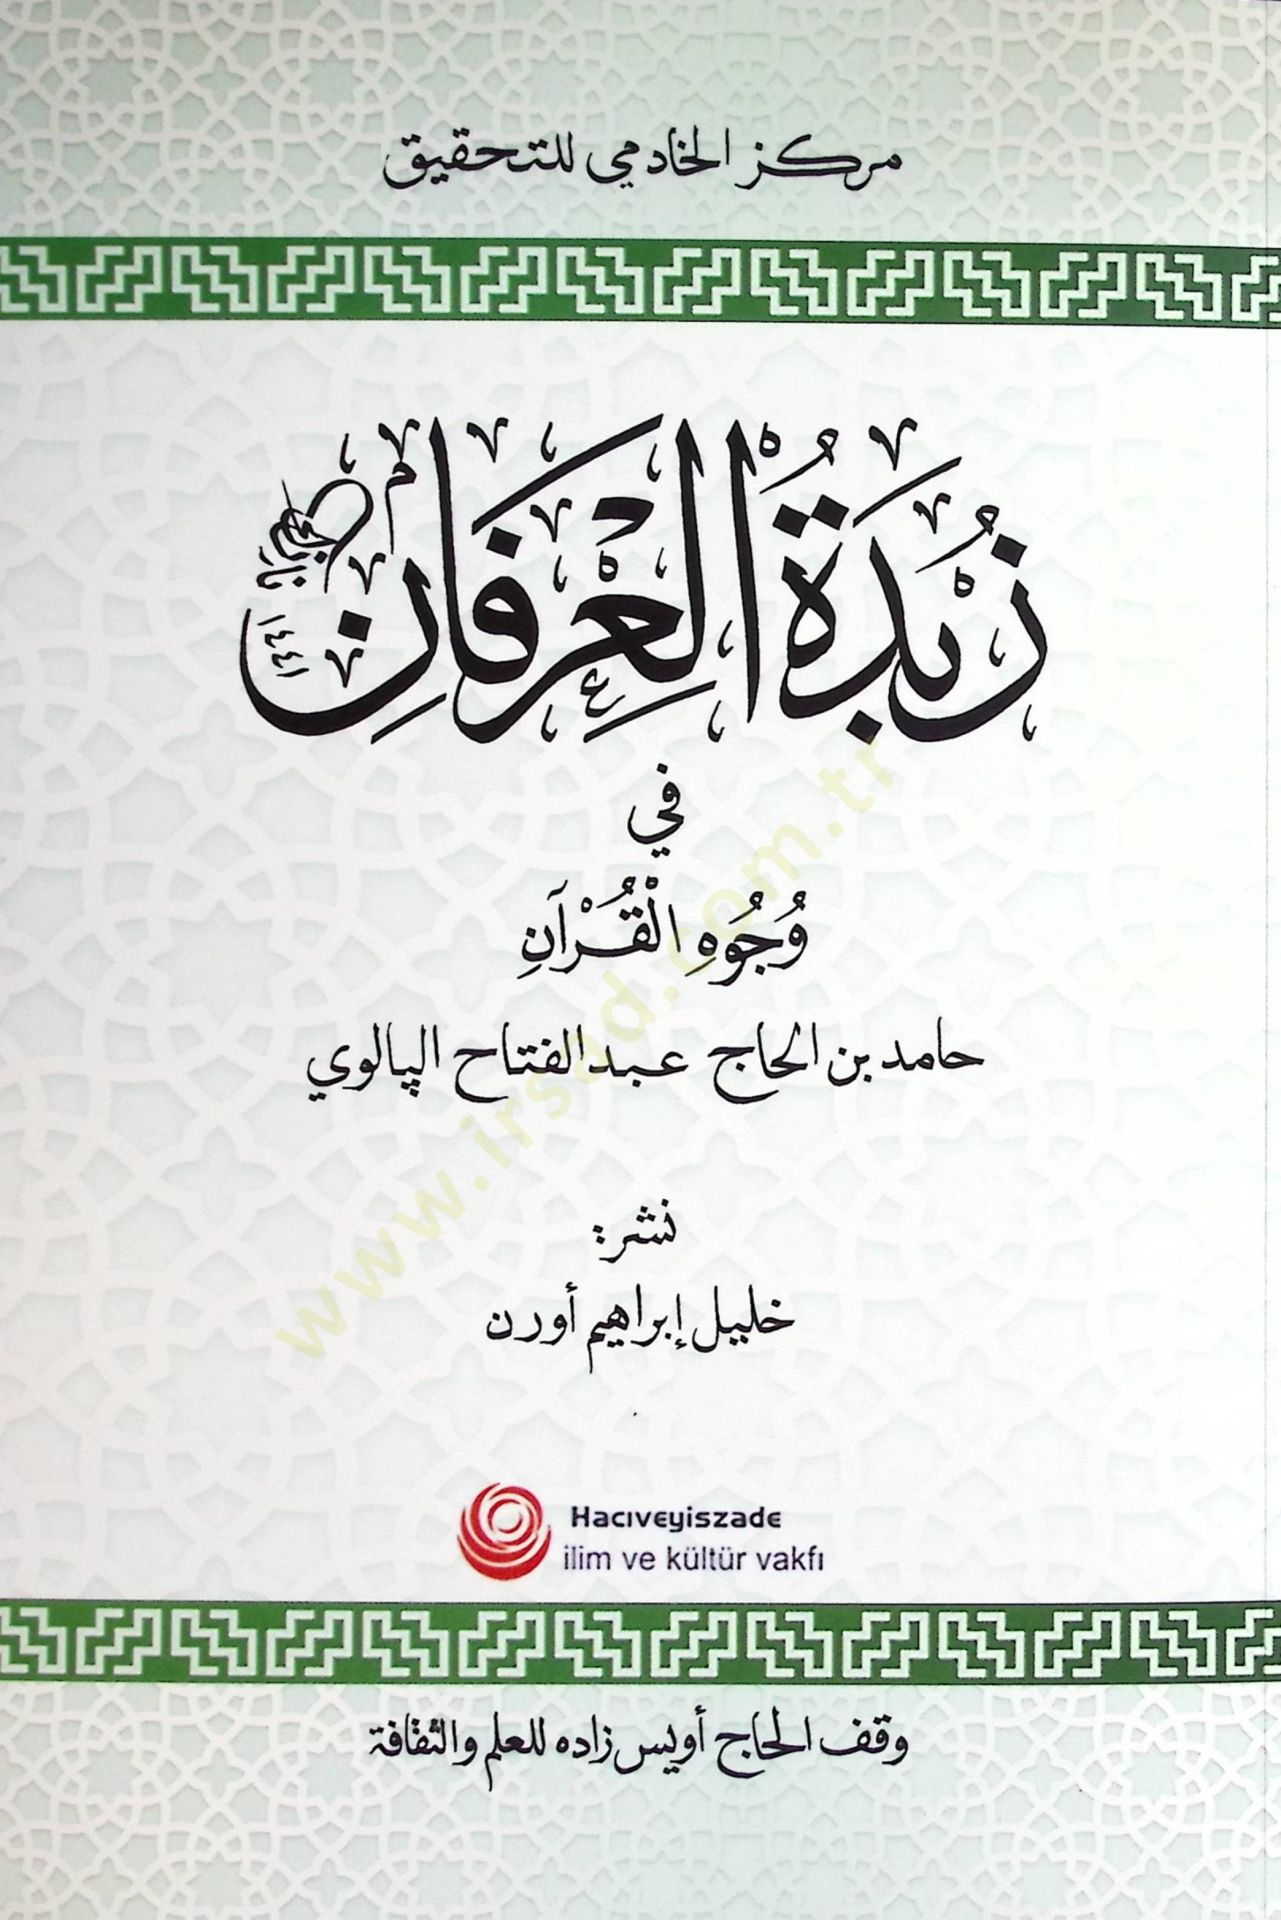 مركز الخادمي للتحقيق
زُبْدَةُ الْعِرْفَانِ
١٤٤١
في
وُجُوهِ الْقُرْآنِ
حامد بن الحاج عبد الفتاح الپالوي
نشر:
خليل إبراهيم أورن
Hacıveyiszade
ilim ve kültür vakfı
وقف الحاج أويس زاده للعلم والثقافة
www.irsad.com.tr